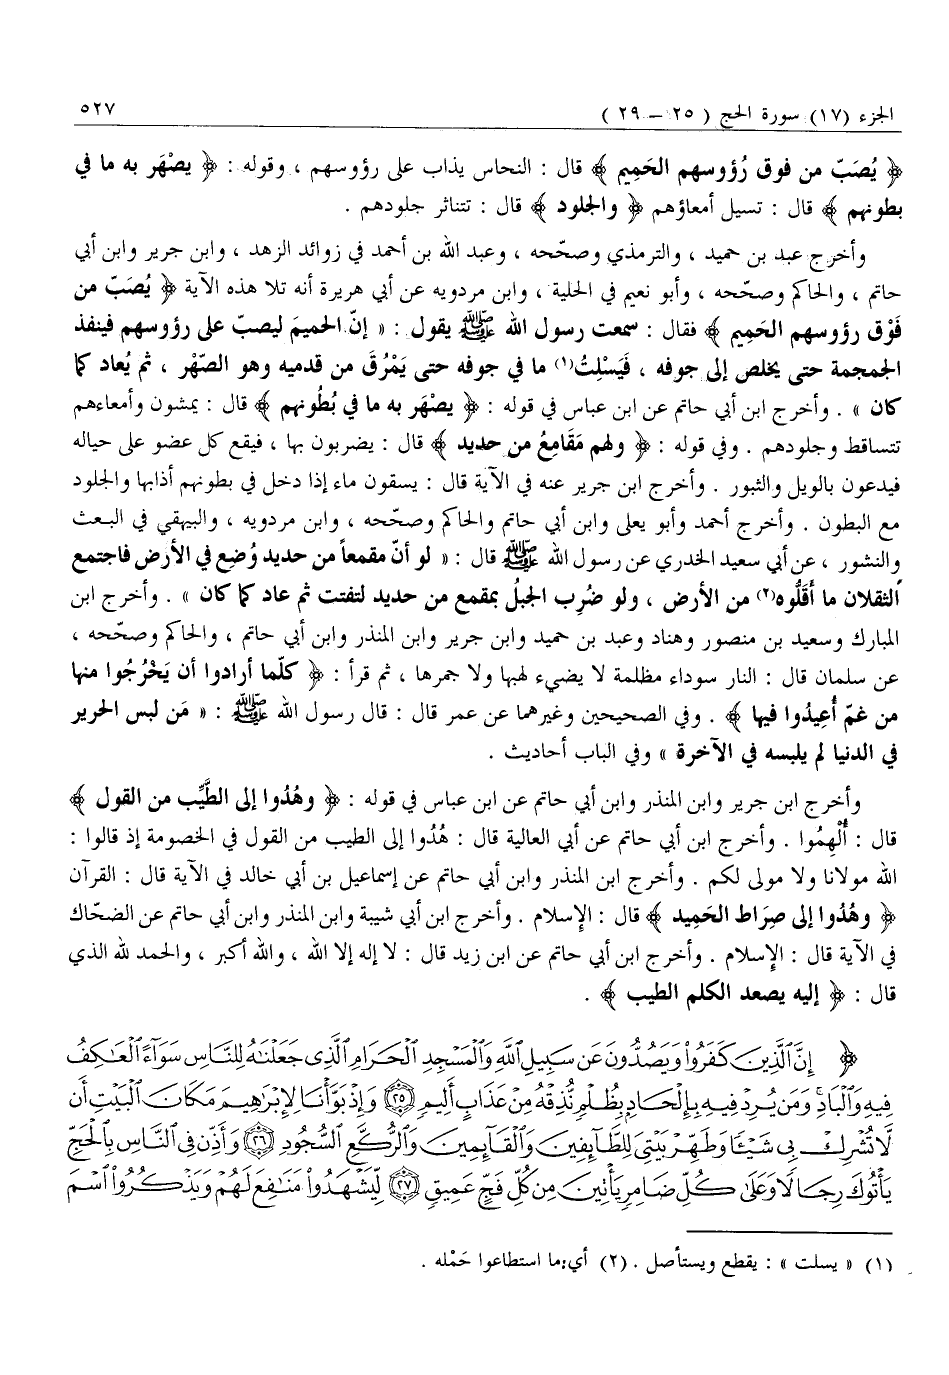 الجزء (١٧) سورة الحج ( ٢٥ – ٢٩ )
٥٢٧
﴿ يُصَبّ من فوق رُؤوسهم الحَمِيم ﴾ قال : النحاس يذاب على رؤوسهم ، وقوله : ﴿ يصْهَر به ما في
بطونهم ﴾ قال : تسيل أمعاؤهم ﴿ والجلود ﴾ قال : تتناثر جلودهم .
وأخرج عبد بن حميد ، والترمذي وصحّحه ، وعبد الله بن أحمد في زوائد الزهد ، وابن جرير وابن أبي
حاتم ، والحاكم وصحّحه ، وأبو نعيم في الحلية ، وابن مردويه عن أبي هريرة أنه تلا هذه الآية ﴿ يُصَبّ من
فَوْق رؤوسهم الحَمِيم ﴾ فقال : سمعت رسول الله ﷺ يقول : « إنّ الحميمَ ليصبّ على رؤوسهم فينفذ
الجمجمة حتى يخلص إلى جوفه ، فَيَسْلِتُ(١) ما في جوفه حتى يَمْرُقَ من قدميه وهو الصّهْر ، ثم يُعاد كما
كان » . وأخرج ابن أبي حاتم عن ابن عباس في قوله : ﴿ يصْهَر به ما في بُطُونهم ﴾ قال : يمشون وأمعاءهم
تتساقط وجلودهم . وفي قوله : ﴿ ولهم مَقَامِعُ من حديد ﴾ قال : يضربون بها ، فيقع كل عضو على حياله
فيدعون بالويل والثبور . وأخرج ابن جرير عنه في الآية قال : يسقون ماء إذا دخل في بطونهم أذابها والجلود
مع البطون . وأخرج أحمد وأبو يعلى وابن أبي حاتم والحاكم وصحّحه ، وابن مردويه ، والبيهقي في البعث
والنشور ، عن أبي سعيد الخدري عن رسول الله ﷺ قال : « لو أنّ مقمعاً من حديد وُضِع في الأرض فاجتمع
الثقلان ما أَقَلُّوه(٢) من الأرض ، ولو ضُرِب الجبلُ بمقمع من حديد لتفتت ثم عاد كما كان » . وأخرج ابن
المبارك وسعيد بن منصور وهناد وعبد بن حميد وابن جرير وابن المنذر وابن أبي حاتم ، والحاكم وصحّحه ،
عن سلمان قال : النار سوداء مظلمة لا يضيء لهبها ولا جمرها ، ثم قرأ : ﴿ كلّما أرادوا أن يَخْرُجُوا منها
من غمّ أُعِيدُوا فيها ﴾ . وفي الصحيحين وغيرهما عن عمر قال : قال رسول الله ﷺ : « مَن لبس الحرير
في الدنيا لم يلبسه في الآخرة » وفي الباب أحاديث .
وأخرج ابن جرير وابن المنذر وابن أبي حاتم عن ابن عباس في قوله : ﴿ وهُدُوا إلى الطَّيِّب من القول ﴾
قال : أُلْهِمُوا . وأخرج ابن أبي حاتم عن أبي العالية قال : هُدُوا إلى الطيب من القول في الخصومة إذ قالوا :
الله مولانا ولا مولى لكم . وأخرج ابن المنذر وابن أبي حاتم عن إسماعيل بن أبي خالد في الآية قال : القرآن
﴿ وهُدُوا إلى صِرَاط الحَمِيد ﴾ قال : الإسلام . وأخرج ابن أبي شيبة وابن المنذر وابن أبي حاتم عن الضحّاك
في الآية قال : الإسلام . وأخرج ابن أبي حاتم عن ابن زيد قال : لا إله إلا الله ، والله أكبر ، والحمد لله الذي
قال : ﴿ إليه يصعد الكلم الطيب ﴾ .
﴿ إِنَّ ٱلَّذِينَ كَفَرُوا۟ وَيَصُدُّونَ عَن سَبِيلِ ٱللَّهِ وَٱلْمَسْجِدِ ٱلْحَرَامِ ٱلَّذِى جَعَلْنَٰهُ لِلنَّاسِ سَوَآءً ٱلْعَٰكِفُ
فِيهِ وَٱلْبَادِ ۚ وَمَن يُرِدْ فِيهِ بِإِلْحَادٍۭ بِظُلْمٍ نُّذِقْهُ مِنْ عَذَابٍ أَلِيمٍ ﴿٢٥﴾ وَإِذْ بَوَّأْنَا لِإِبْرَٰهِيمَ مَكَانَ ٱلْبَيْتِ أَن
لَّا تُشْرِكْ بِى شَيْـًٔا وَطَهِّرْ بَيْتِىَ لِلطَّآئِفِينَ وَٱلْقَآئِمِينَ وَٱلرُّكَّعِ ٱلسُّجُودِ ﴿٢٦﴾ وَأَذِّن فِى ٱلنَّاسِ بِٱلْحَجِّ
يَأْتُوكَ رِجَالًا وَعَلَىٰ كُلِّ ضَامِرٍ يَأْتِينَ مِن كُلِّ فَجٍّ عَمِيقٍ ﴿٢٧﴾ لِّيَشْهَدُوا۟ مَنَٰفِعَ لَهُمْ وَيَذْكُرُوا۟ ٱسْمَ
(١) « يسلت » : يقطع ويستأصل . (٢) أي: ما استطاعوا حَمْله .